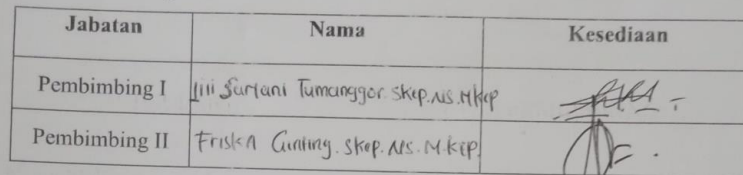 Jabatan Nama Kesediaan
Pembimbing I Lili Suriani Tumanggor. Skep. NS. MKep
Pembimbing II Friska Ginting. Skep. NS. M.kep.